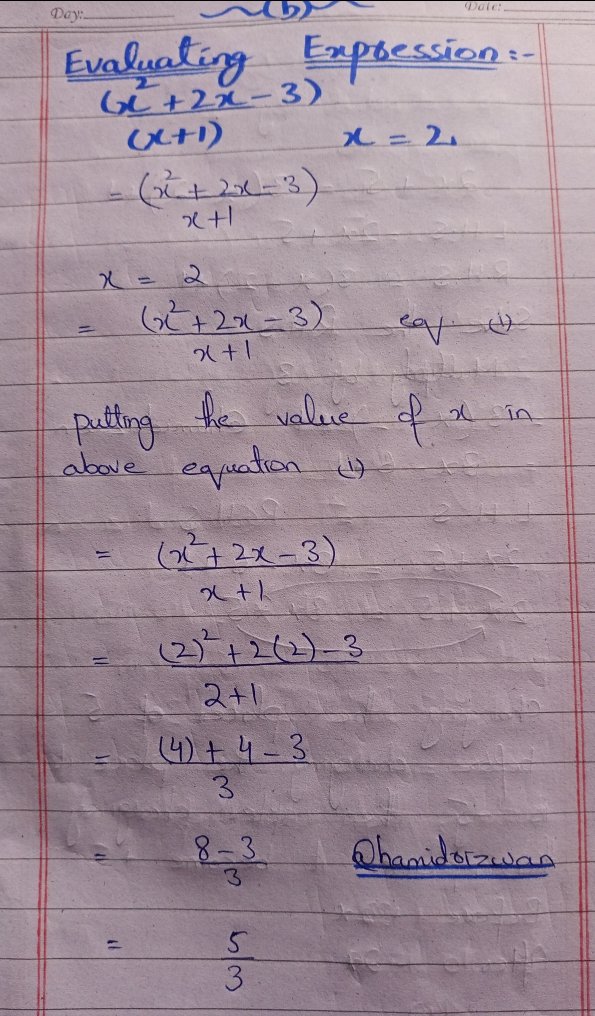 Day:
Date:
(b)
Evaluating Expression :-
(x² + 2x - 3)
(x+1) x = 2,
= (x² + 2x - 3)
x+1
x = 2
= (x² + 2x - 3) eq. (1)
x+1
putting the value of x in
above equation (1)
= (x² + 2x - 3)
x+1
= (2)² + 2(2) - 3
2+1
= (4) + 4 - 3
3
= 8 - 3 @hamidrizwan
3
= 5
3